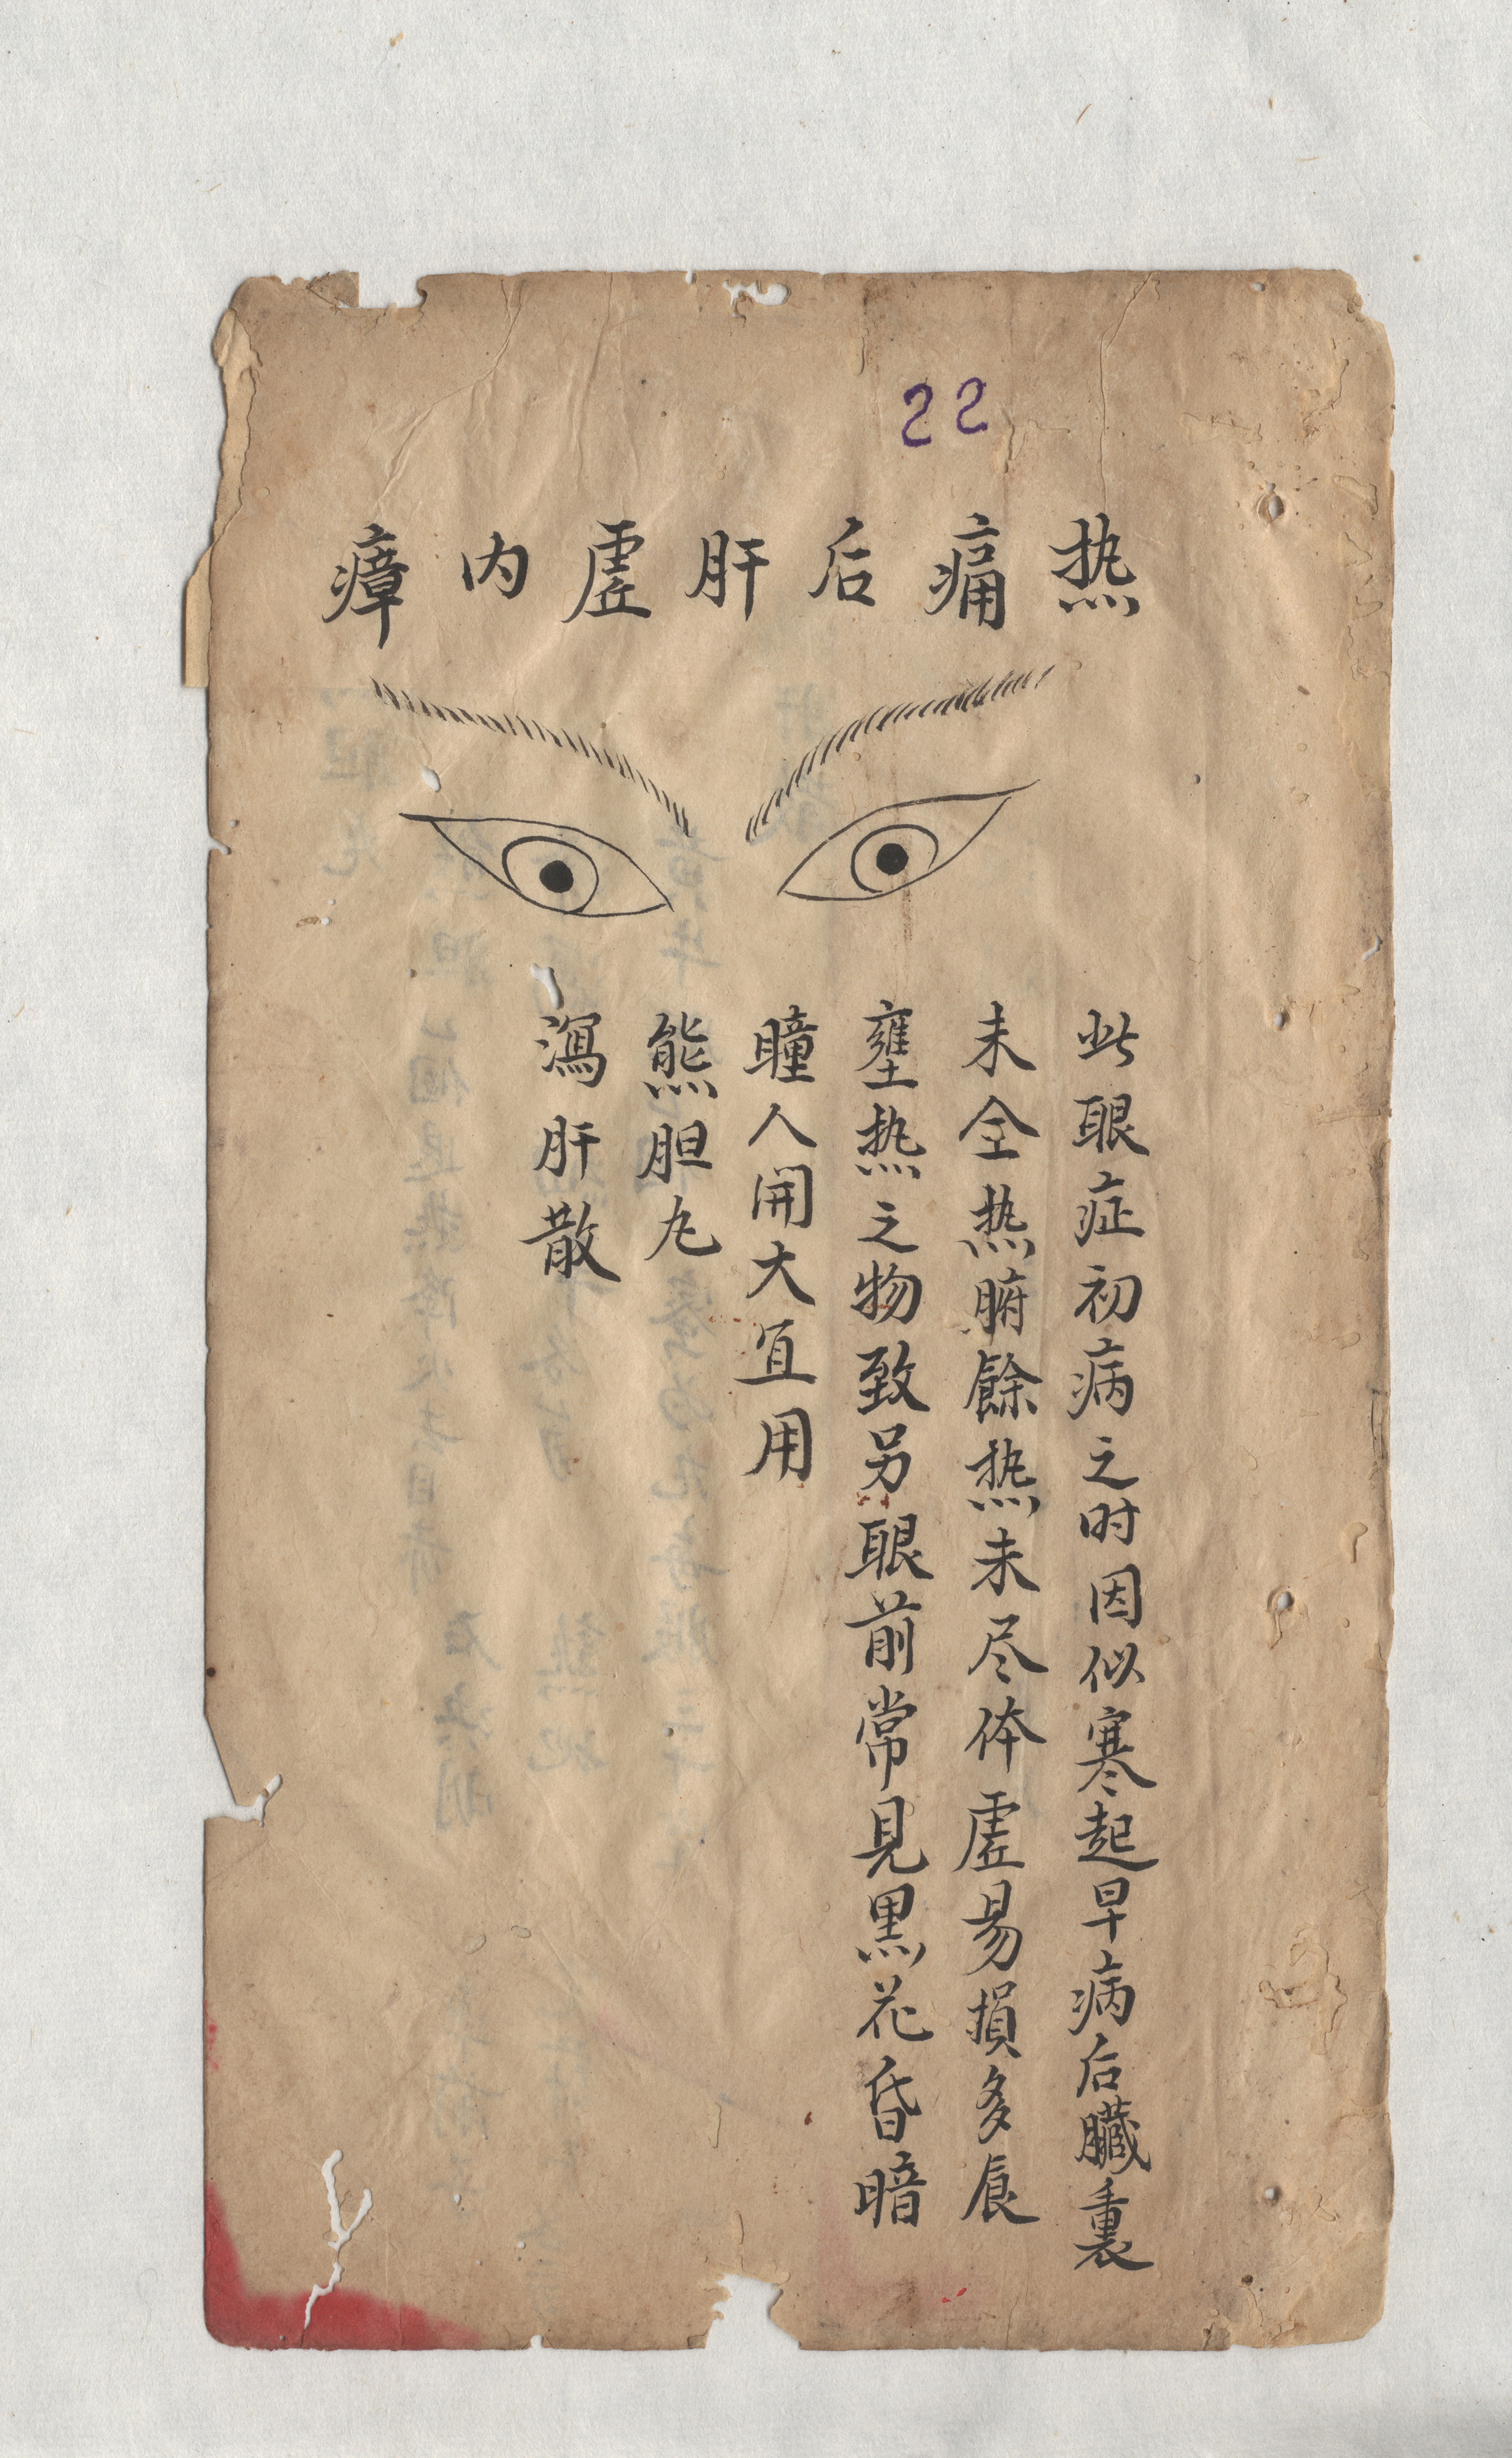 22
热痛后肝虚内瘴
此眼症初病之时因似寒起早病后臓裏
未全热腑餘热未尽体虚易損多食
壅热之物致另眼前常見黒花昏暗
瞳人開大宜用
熊胆丸
瀉肝散